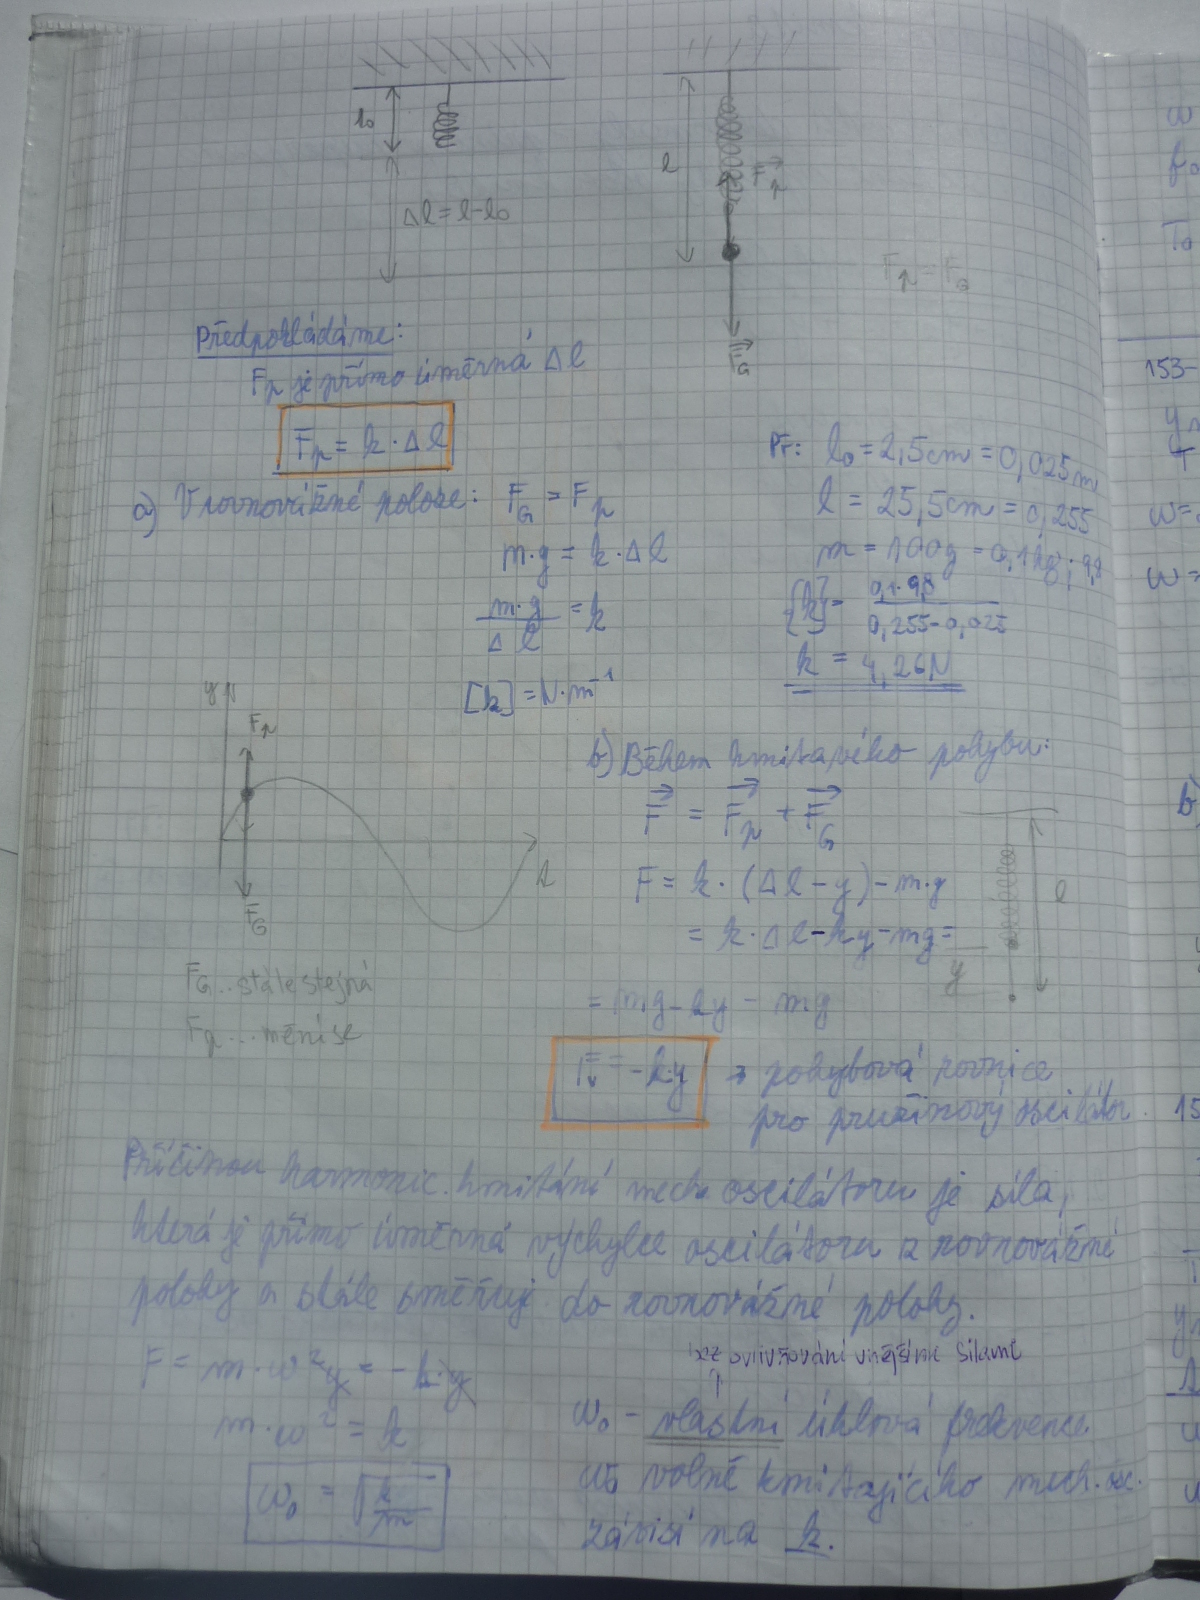 l₀
Δl = l - l₀
l
F⃗p
Fp = FG
F⃗G
Předpokládáme:
Fp je přímo úměrná Δl
Fp = k · Δl
a) V rovnovážné poloze: FG = Fp
m·g = k · Δl
m·g / Δl = k
[k] = N·m⁻¹
Př: l₀ = 2,5cm = 0,025m
l = 25,5cm = 0,255
m = 100g = 0,1kg; 9,8
{k} = 0,1·9,8 / 0,255-0,025
k = 4,26N
y
Fp
FG
t
FG...stále stejná
Fp...mění se
b) Během kmitavého pohybu:
F⃗ = F⃗p + F⃗G
F = k · (Δl - y) - m·g
= k · Δl - ky - mg =
= mg - ky - mg
l
y
Fv = -k·y → pohybová rovnice
pro pružinový oscilátor.
Příčinou harmonic. kmitání mech. oscilátoru je síla,
která je přímo úměrná výchylce oscilátoru z rovnovážné
polohy a stále směřuje do rovnovážné polohy.
F = m·ω²y = -k·y
m·ω² = k
ω₀ = √k/m
bez ovlivňování vnějšími silami
ω₀ - vlastní úhlová frekvence
ω₀ volně kmitajícího mech. osc.
závisí na k.
ω
f₀
T₀
153-
T
ω=
ω=
b)
15